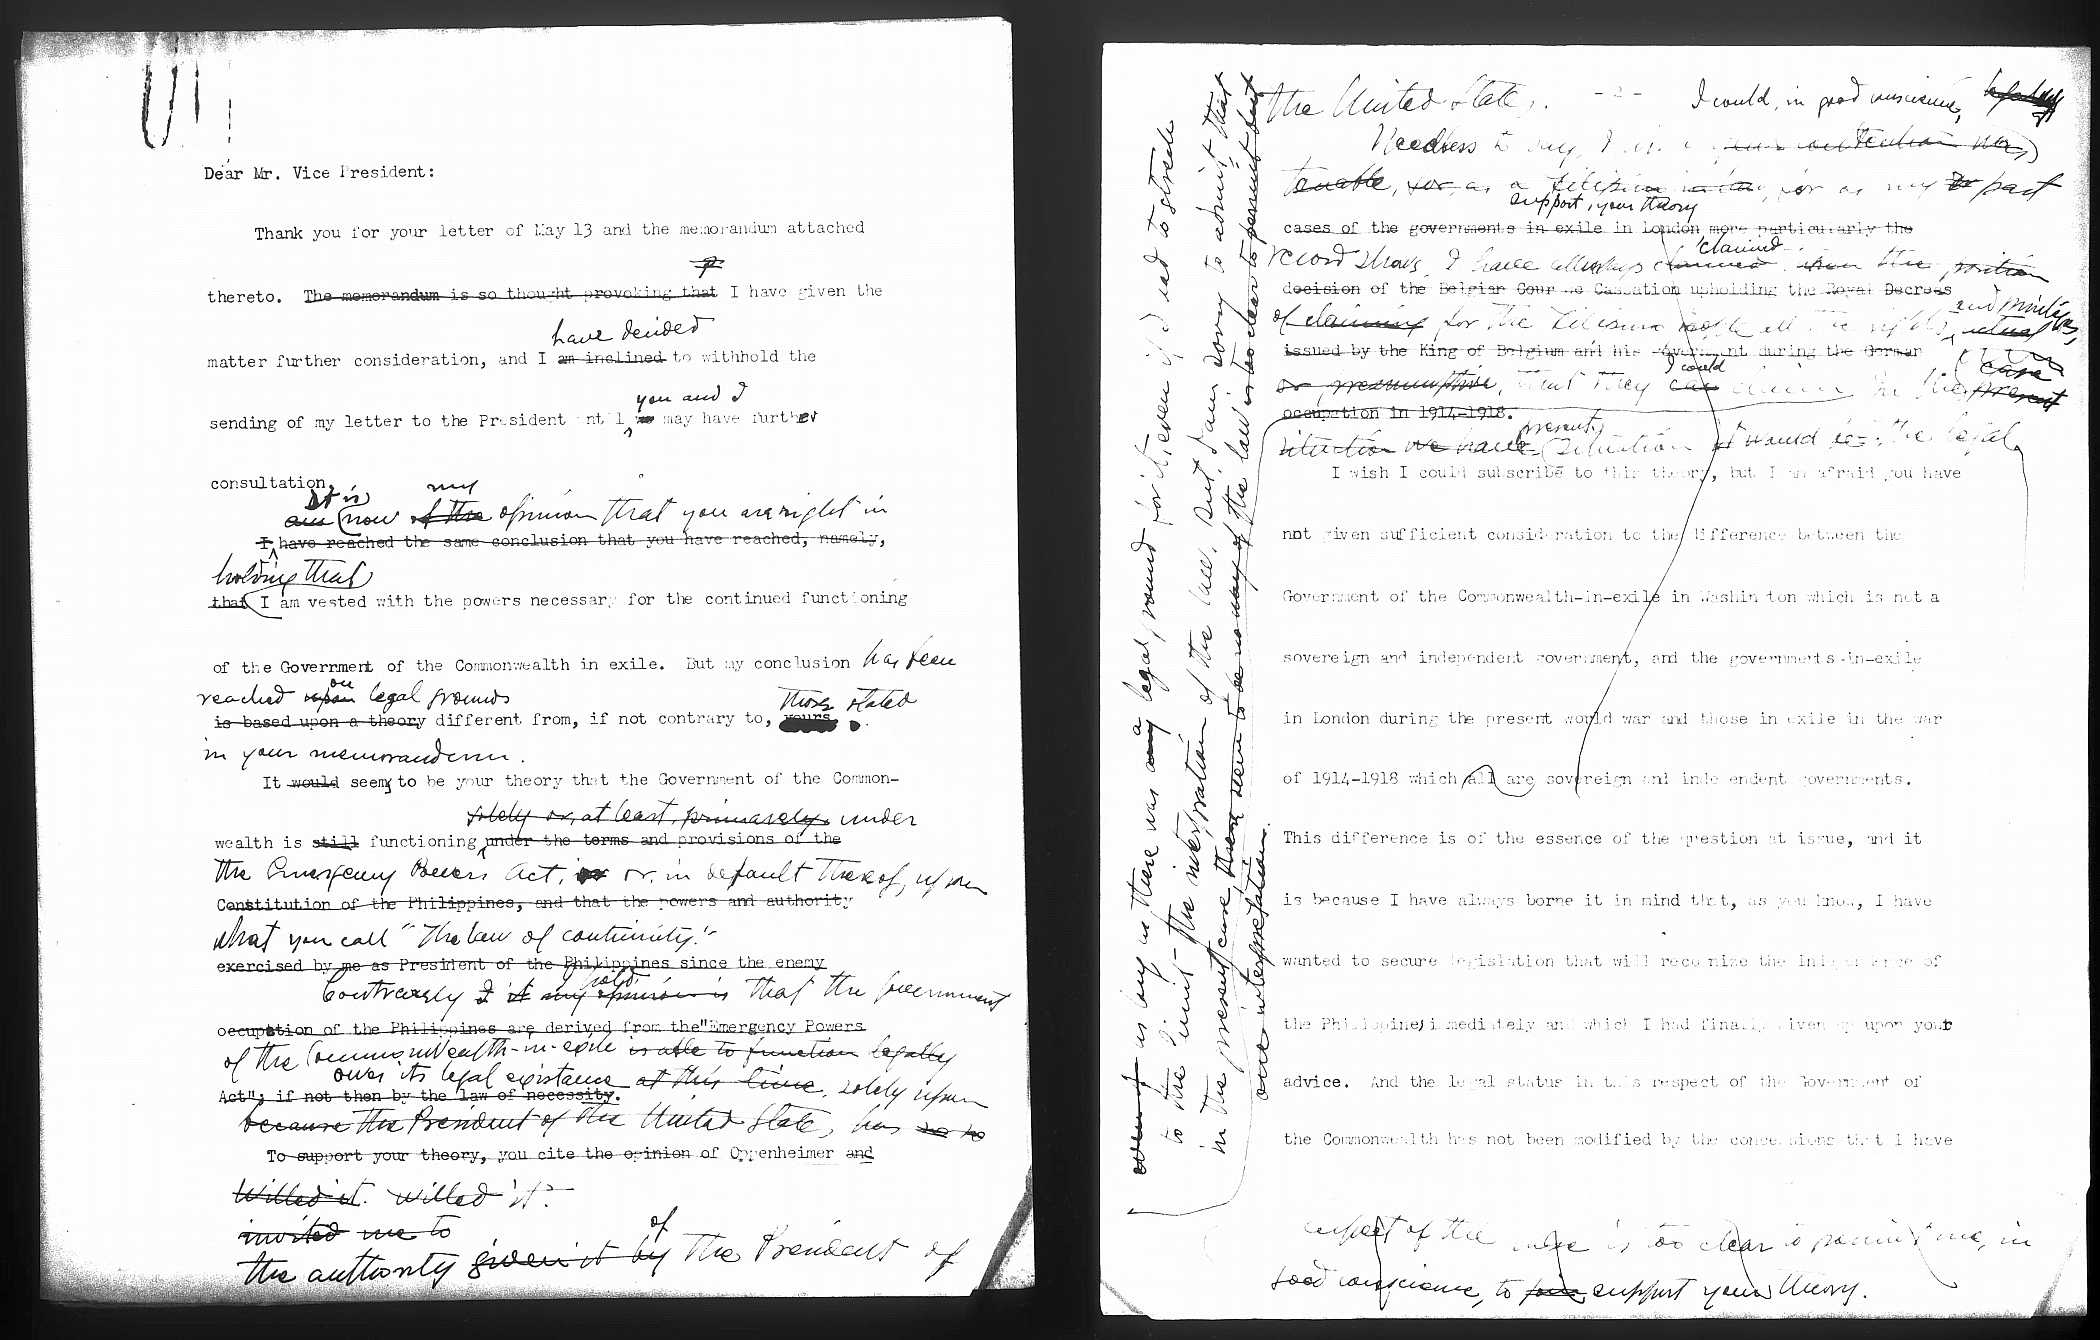 Dear Mr. Vice President:
Thank you for your letter of May 13 and the memorandum attached
thereto. The memorandum is so thought provoking that I have given the
have decided
matter further consideration, and I am inclined to withhold the
you and I
sending of my letter to the President until we may have further
consultation.
It is my
am now of the opinion that you are right in
I have reached the same conclusion that you have reached, namely,
holding that
that I am vested with the powers necessary for the continued functioning
of the Government of the Commonwealth in exile. But my conclusion has been
reached upon on legal grounds
those stated
is based upon a theory different from, if not contrary to, yours.
in your memorandum.
It would seems to be your theory that the Government of the Common-
solely or, at least, primarely under
wealth is still functioning under the terms and provisions of the
the Emergency Powers Act, or, in default thereof, upon
Constitution of the Philippines, and that the powers and authority
what you call "the law of continuity."
exercised by me as President of the Philippines since the enemy
hold
Contrarely I it my opinion is that the Government
occupation of the Philippines are derived from the "Emergency Powers
of the Commonwealth-in-exile is able to function legally
owes its legal existence at this time, solely upon
Act"; if not then by the law of necessity.
because the President of the United States, has so
To support your theory, you cite the opinion of Oppenheimer and
Willed it. willed it.
invited me to
of
the authority given it by the President of
the United States. -2- I could, in good conscience,
Needless to say, I
tenable, for, as a Filipino for as my past
support, your theory
cases of the governments in exile in London more particularly the
claimed
record shows, I have always claimed the position
decision of the Belgian Cour de Cassation upholding the Royal Decrees
and privileges,
of claiming for the Filipino people all the rights, actual
issued by the King of Belgium and his Government during the German
I could case
or presumptive, that they can claim in the present
occupation in 1914-1918.
present
situation we have situation it would be the legal
I wish I could subscribe to this theory, but I am afraid you have
not given sufficient consideration to the difference between the
Government of the Commonwealth-in-exile in Washington which is not a
sovereign and independent government, and the governments-in-exile
in London during the present world war and those in exile in the war
of 1914-1918 which all are sovereign and independent governments.
This difference is of the essence of the question at issue, and it
is because I have always borne it in mind that, as you know, I have
wanted to secure legislation that will recognize the independence of
the Philippines immediately and which I had finally given up upon your
advice. And the legal status in this respect of the Government of
the Commonwealth has not been modified by the concessions that I have
aspect of the case is too clear to permit me, in
good conscience, to support your theory.
even if as long as there was any a legal ground for it, even if I had to stretch
to the limit - the interpretation of the law. But, I am sorry to admit, that
in the present case there seem to be no way of the law is too clear to permit but
one interpretation.